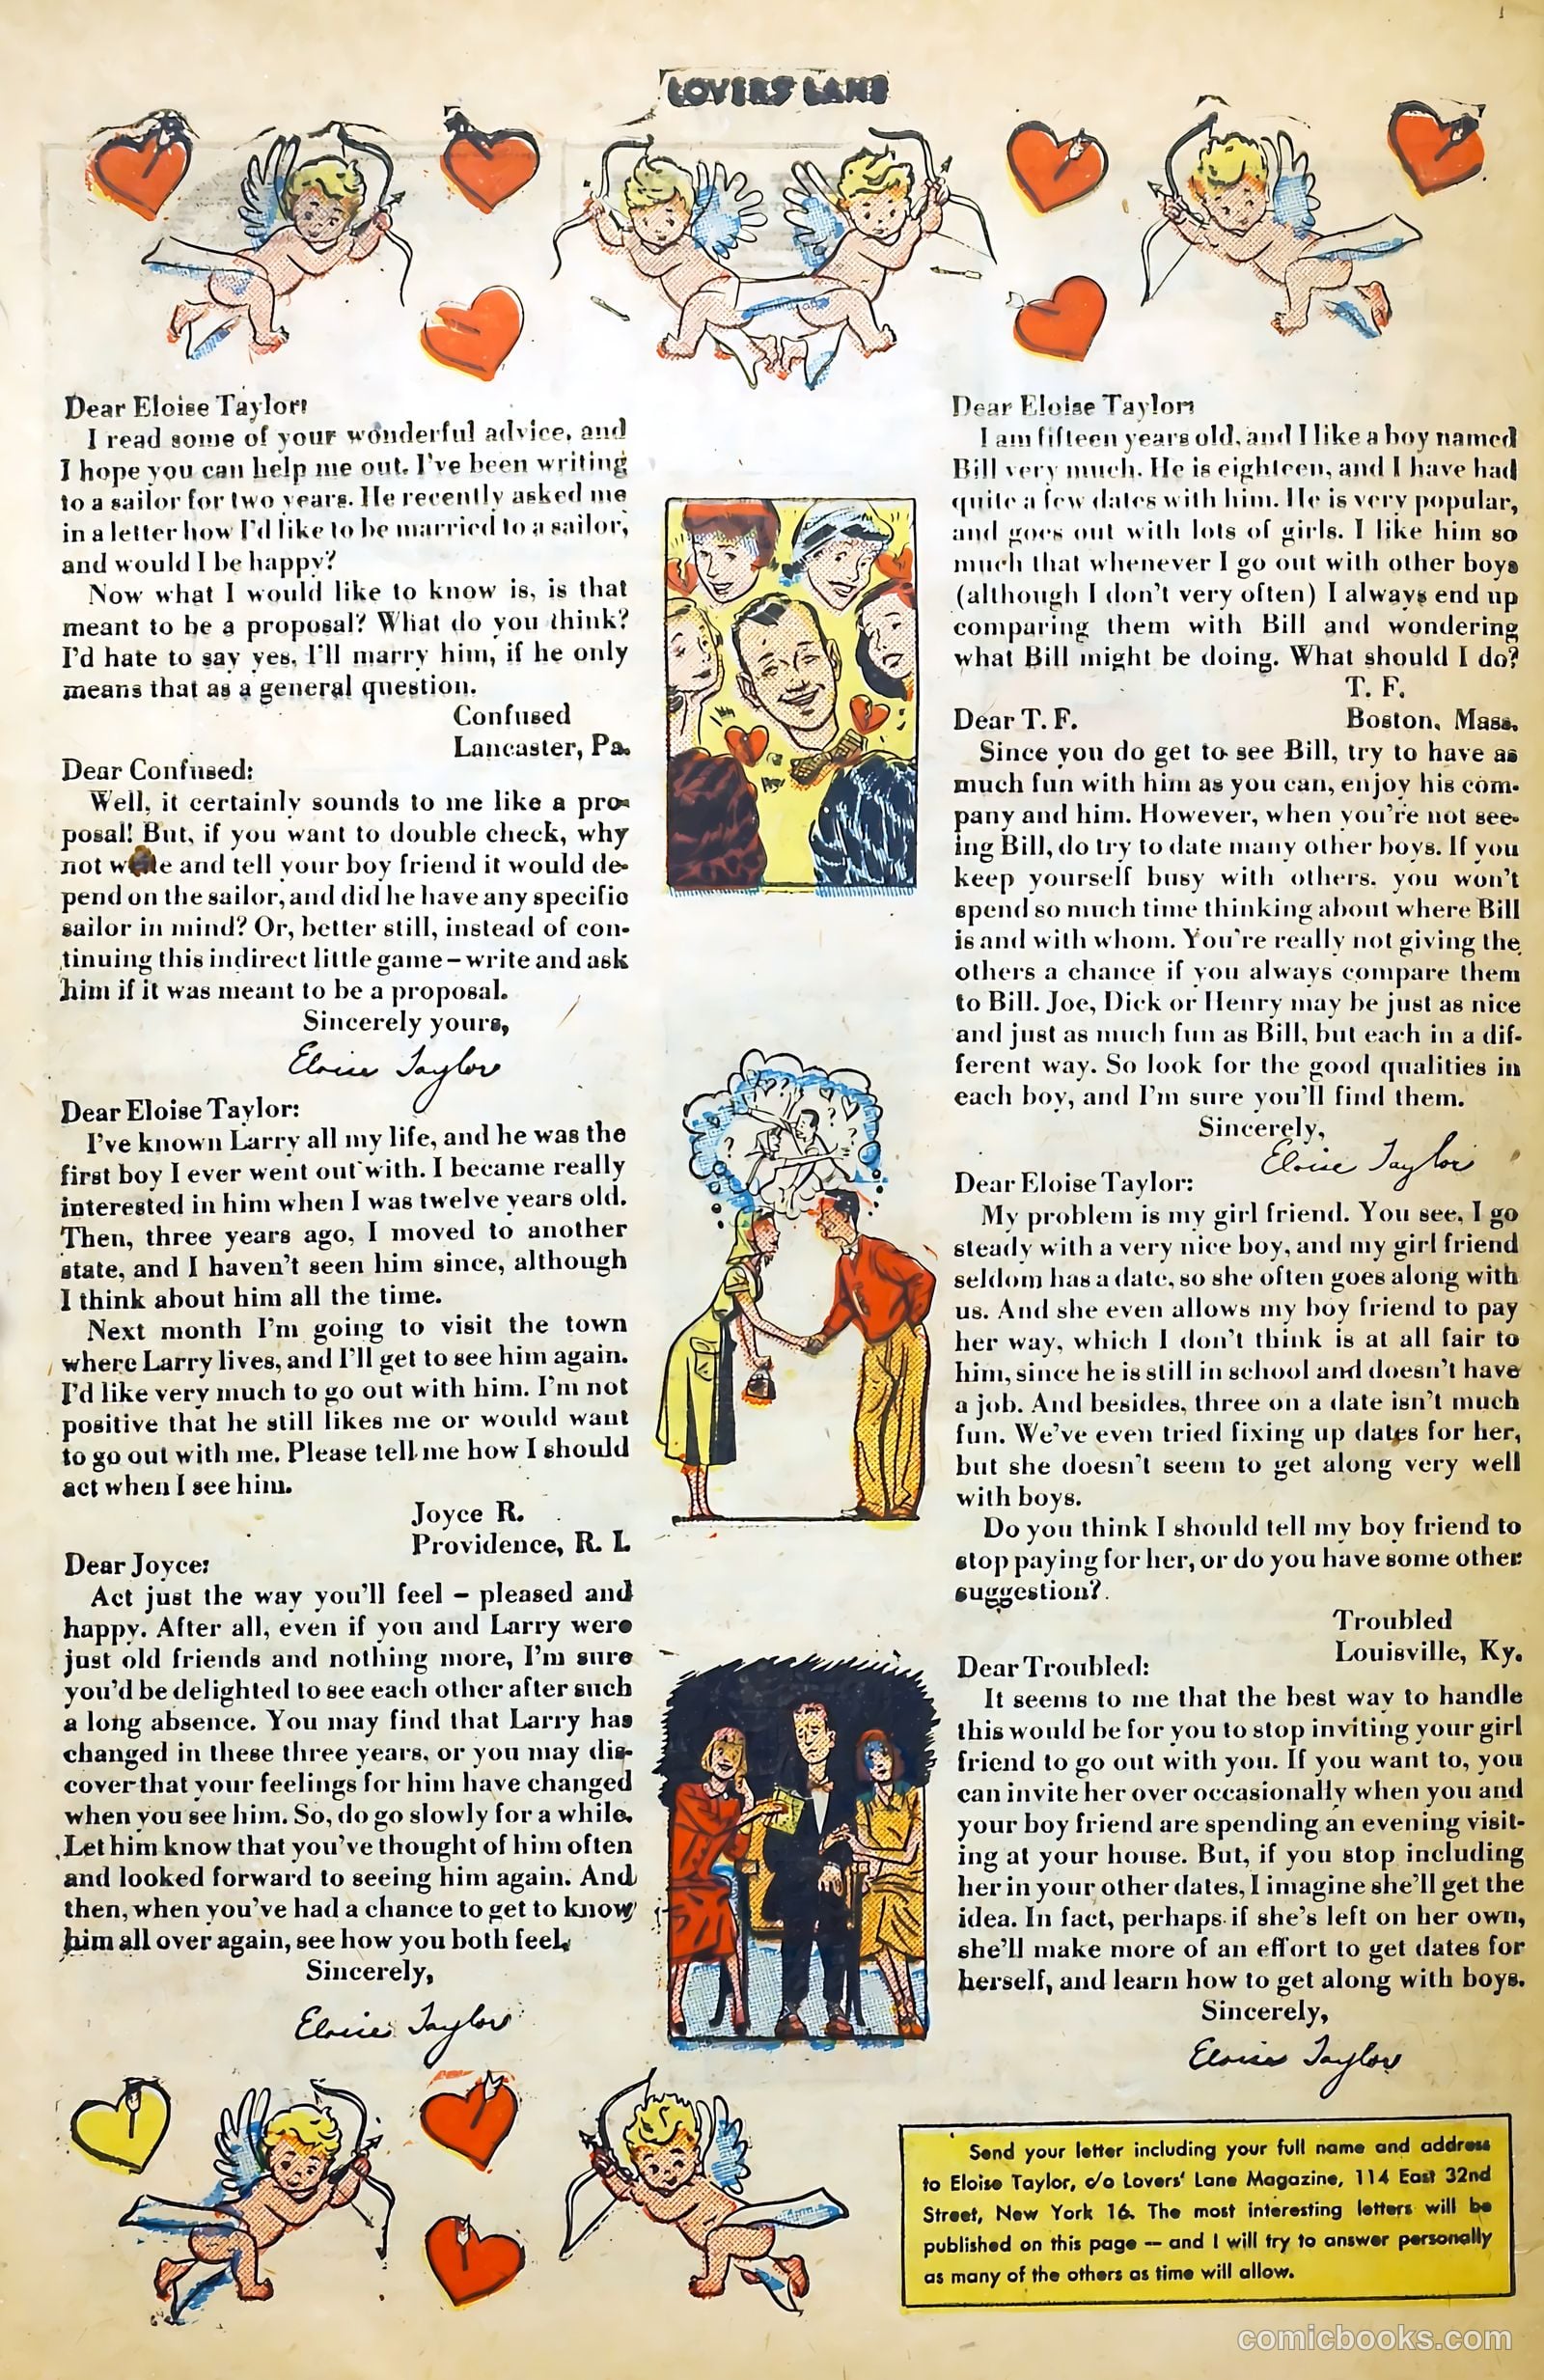 LOVERS' LANE
Dear Eloise Taylor:
I read some of your wonderful advice, and
I hope you can help me out. I've been writing
to a sailor for two years. He recently asked me
in a letter how I'd like to be married to a sailor,
and would I be happy?
Now what I would like to know is, is that
meant to be a proposal? What do you think?
I'd hate to say yes, I'll marry him, if he only
means that as a general question.
Confused
Lancaster, Pa.
Dear Confused:
Well, it certainly sounds to me like a pro-
posal! But, if you want to double check, why
not and tell your boy friend it would de-
pend on the sailor, and did he have any specific
sailor in mind? Or, better still, instead of con-
tinuing this indirect little game – write and ask
him if it was meant to be a proposal.
Sincerely yours,
Eloise Taylor
Dear Eloise Taylor:
I've known Larry all my life, and he was the
first boy I ever went out with. I became really
interested in him when I was twelve years old.
Then, three years ago, I moved to another
state, and I haven't seen him since, although
I think about him all the time.
Next month I'm going to visit the town
where Larry lives, and I'll get to see him again.
I'd like very much to go out with him. I'm not
positive that he still likes me or would want
to go out with me. Please tell me how I should
act when I see him.
Joyce R.
Providence, R. I.
Dear Joyce:
Act just the way you'll feel – pleased and
happy. After all, even if you and Larry were
just old friends and nothing more, I'm sure
you'd be delighted to see each other after such
a long absence. You may find that Larry has
changed in these three years, or you may dis-
cover that your feelings for him have changed
when you see him. So, do go slowly for a while.
Let him know that you've thought of him often
and looked forward to seeing him again. And
then, when you've had a chance to get to know
him all over again, see how you both feel.
Sincerely,
Eloise Taylor
Dear Eloise Taylor:
I am fifteen years old, and I like a boy named
Bill very much. He is eighteen, and I have had
quite a few dates with him. He is very popular,
and goes out with lots of girls. I like him so
much that whenever I go out with other boys
(although I don't very often) I always end up
comparing them with Bill and wondering
what Bill might be doing. What should I do?
T. F.
Boston, Mass.
Dear T. F.
Since you do get to see Bill, try to have as
much fun with him as you can, enjoy his com-
pany and him. However, when you're not see-
ing Bill, do try to date many other boys. If you
keep yourself busy with others, you won't
spend so much time thinking about where Bill
is and with whom. You're really not giving the
others a chance if you always compare them
to Bill. Joe, Dick or Henry may be just as nice
and just as much fun as Bill, but each in a dif-
ferent way. So look for the good qualities in
each boy, and I'm sure you'll find them.
Sincerely,
Eloise Taylor
Dear Eloise Taylor:
My problem is my girl friend. You see, I go
steady with a very nice boy, and my girl friend
seldom has a date, so she often goes along with
us. And she even allows my boy friend to pay
her way, which I don't think is at all fair to
him, since he is still in school and doesn't have
a job. And besides, three on a date isn't much
fun. We've even tried fixing up dates for her,
but she doesn't seem to get along very well
with boys.
Do you think I should tell my boy friend to
stop paying for her, or do you have some other
suggestion?
Troubled
Louisville, Ky.
Dear Troubled:
It seems to me that the best way to handle
this would be for you to stop inviting your girl
friend to go out with you. If you want to, you
can invite her over occasionally when you and
your boy friend are spending an evening visit-
ing at your house. But, if you stop including
her in your other dates, I imagine she'll get the
idea. In fact, perhaps if she's left on her own,
she'll make more of an effort to get dates for
herself, and learn how to get along with boys.
Sincerely,
Eloise Taylor
Send your letter including your full name and address
to Eloise Taylor, c/o Lovers' Lane Magazine, 114 East 32nd
Street, New York 16. The most interesting letters will be
published on this page — and I will try to answer personally
as many of the others as time will allow.
comicbooks.com